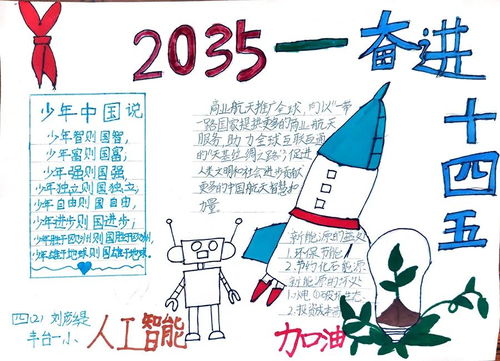 2035一奋进
十四五
少年中国说
少年智则国智,
少年富则国富;
少年强则国强,
少年独立则国独立,
少年自由则国自由,
少年进步则国进步;
少年胜于欧洲则国胜于欧洲,
少年雄于地球则国雄于地球。
商业航天推广全球,均以"一带
一路国家提供更多的商业航天
服务,助力全球互联互通
的"天基丝绸之路",促进
人类文明和社会进步贡献
更多的中国航天智慧和
力量
新能源的益处
1.环保节能
2.节约化石能源
新能源的坏处
四(2) 刘彦缇
丰台一小
人工智能
加油